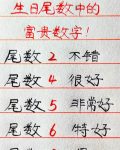 生日尾数中的
富贵数字！
尾数 2 不错
尾数 4 很好
尾数 5 非常好
尾数 6 特好
尾数 8